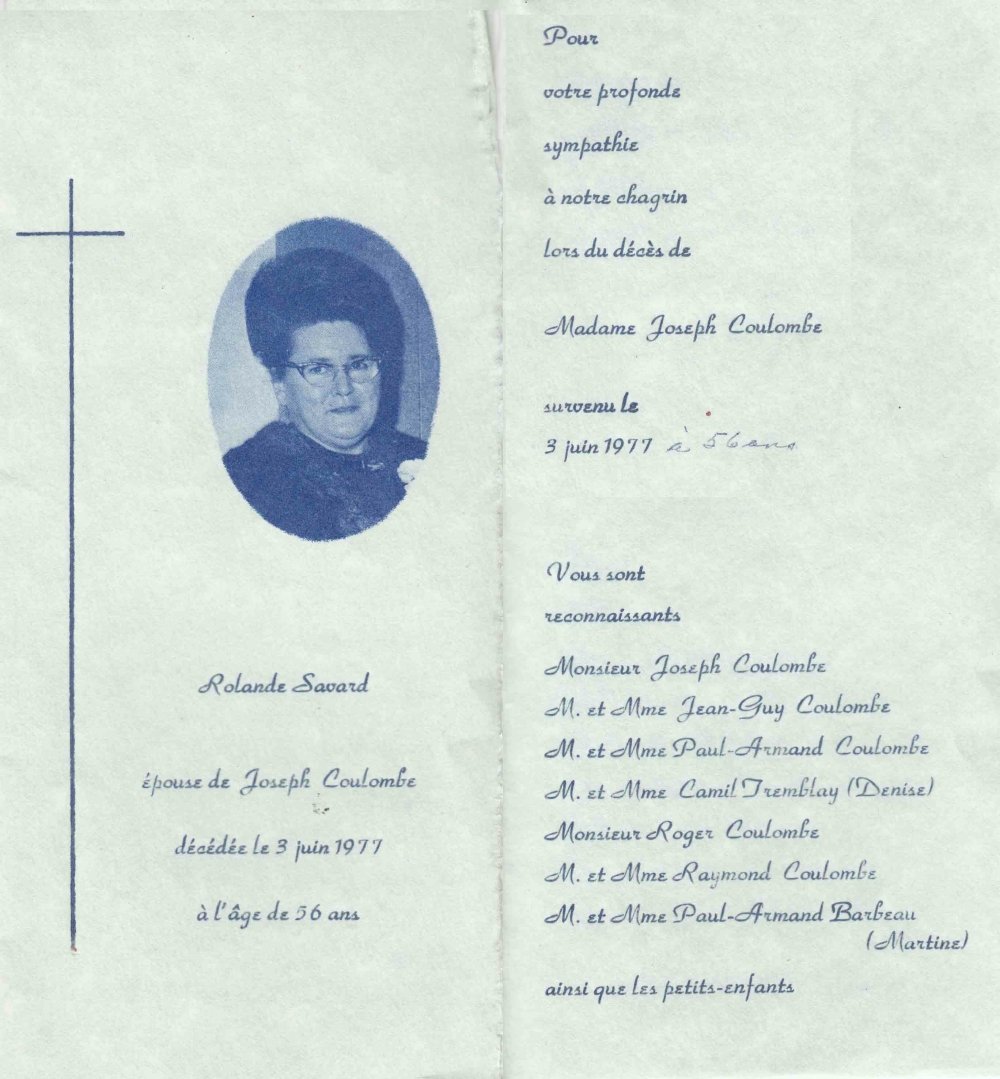 Rolande Savard
épouse de Joseph Coulombe
décédée le 3 juin 1977
à l'âge de 56 ans
Pour
votre profonde
sympathie
à notre chagrin
lors du décès de
Madame Joseph Coulombe
survenu le
3 juin 1977 à 56 ans
Vous sont
reconnaissants
Monsieur Joseph Coulombe
M. et Mme Jean-Guy Coulombe
M. et Mme Paul-Armand Coulombe
M. et Mme Camil Tremblay (Denise)
Monsieur Roger Coulombe
M. et Mme Raymond Coulombe
M. et Mme Paul-Armand Barbeau
(Martine)
ainsi que les petits-enfants